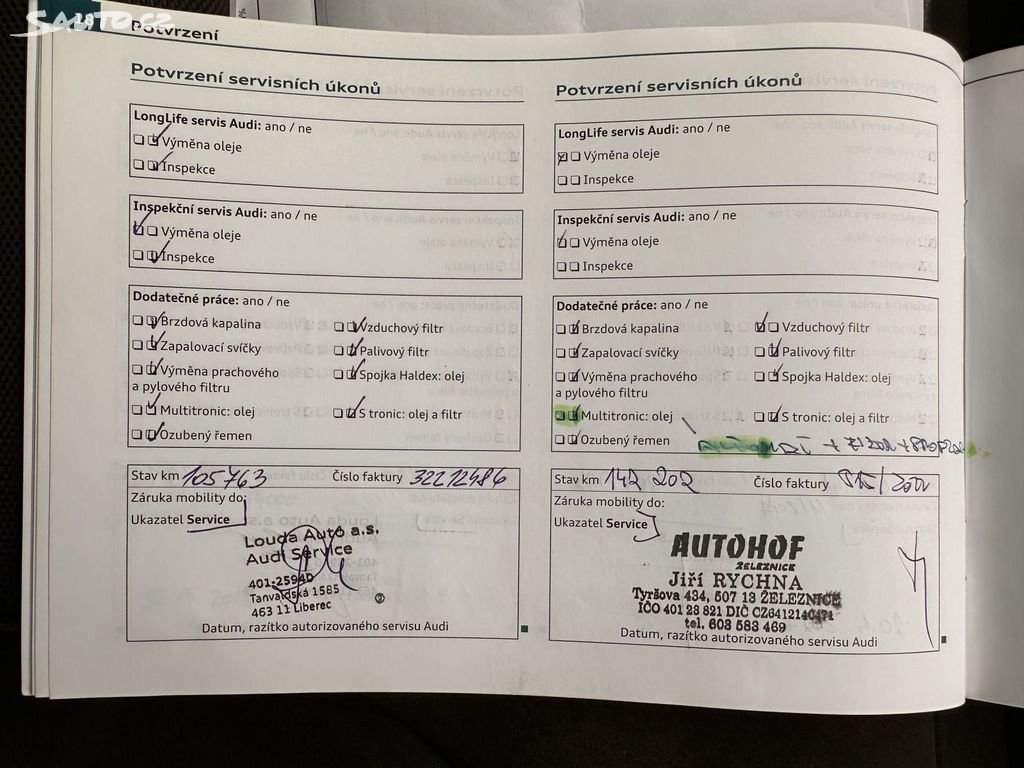 SAUTO.CZ
Potvrzení
Potvrzení servisních úkonů
LongLife servis Audi: ano / ne
Výměna oleje
Inspekce
Inspekční servis Audi: ano / ne
Výměna oleje
Inspekce
Dodatečné práce: ano / ne
Brzdová kapalina
Vzduchový filtr
Zapalovací svíčky
Palivový filtr
Výměna prachového
a pylového filtru
Spojka Haldex: olej
Multitronic: olej
S tronic: olej a filtr
Ozubený řemen
Stav km 105763 Číslo faktury 32212486
Záruka mobility do:
Ukazatel Service
Louda Auto a.s.
Audi Service
401-25940
Tanvaldská 1585
463 11 Liberec
Datum, razítko autorizovaného servisu Audi
Potvrzení servisních úkonů
LongLife servis Audi: ano / ne
Výměna oleje
Inspekce
Inspekční servis Audi: ano / ne
Výměna oleje
Inspekce
Dodatečné práce: ano / ne
Brzdová kapalina
Vzduchový filtr
Zapalovací svíčky
Palivový filtr
Výměna prachového
a pylového filtru
Spojka Haldex: olej
Multitronic: olej
S tronic: olej a filtr
Ozubený řemen
Stav km 142 202 Číslo faktury
Záruka mobility do:
Ukazatel Service
AUTOHOF
ŽELEZNICE
Jiří RYCHNA
Tyršova 434, 507 13 ŽELEZNICE
IČO 401 23 821 DIČ CZ6412140471
tel. 603 583 469
Datum, razítko autorizovaného servisu Audi